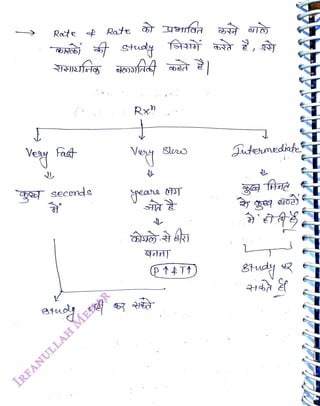 → Rate & Rate को प्रभावित करने वाले
कारकों की study जिसमें करते है, उसे
रासायनिक बलगतिकी कहते है।
Rxⁿ
Very Fast
Very Slow
Intermediate
कुछ seconds
में
years लग
जाते है
कोयले से हीरा
बनना
P↑ & T↑
कुछ मिनट
से कुछ घण्टो
में हो ती है
study कर
सकते है।
study नहीं कर सकते
IRFANULLAH MEMOR